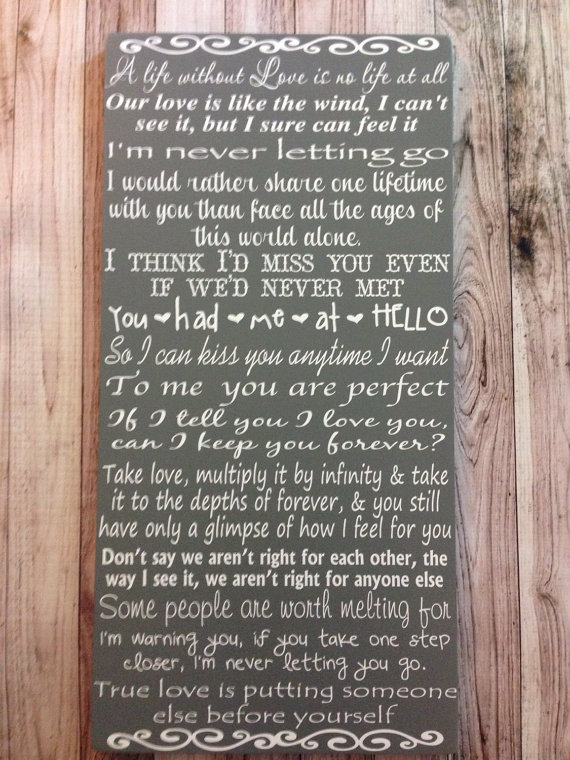 A life without Love is no life at all
Our love is like the wind, I can't
see it, but I sure can feel it
I'm never letting go
I would rather share one lifetime
with you than face all the ages of
this world alone.
I THINK I'D MISS YOU EVEN
IF WE'D NEVER MET
You ❤ had ❤ me ❤ at ❤ HELLO
So I can kiss you anytime I want
To me you are perfect
If I tell you I love you,
can I keep you forever?
Take love, multiply it by infinity & take
it to the depths of forever, & you still
have only a glimpse of how I feel for you
Don't say we aren't right for each other, the
way I see it, we aren't right for anyone else
Some people are worth melting for
I'm warning you, if you take one step
closer, I'm never letting you go.
True love is putting someone
else before yourself